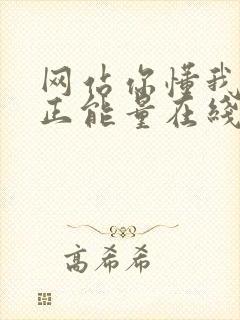 网站你懂我
正能量在线
高希希